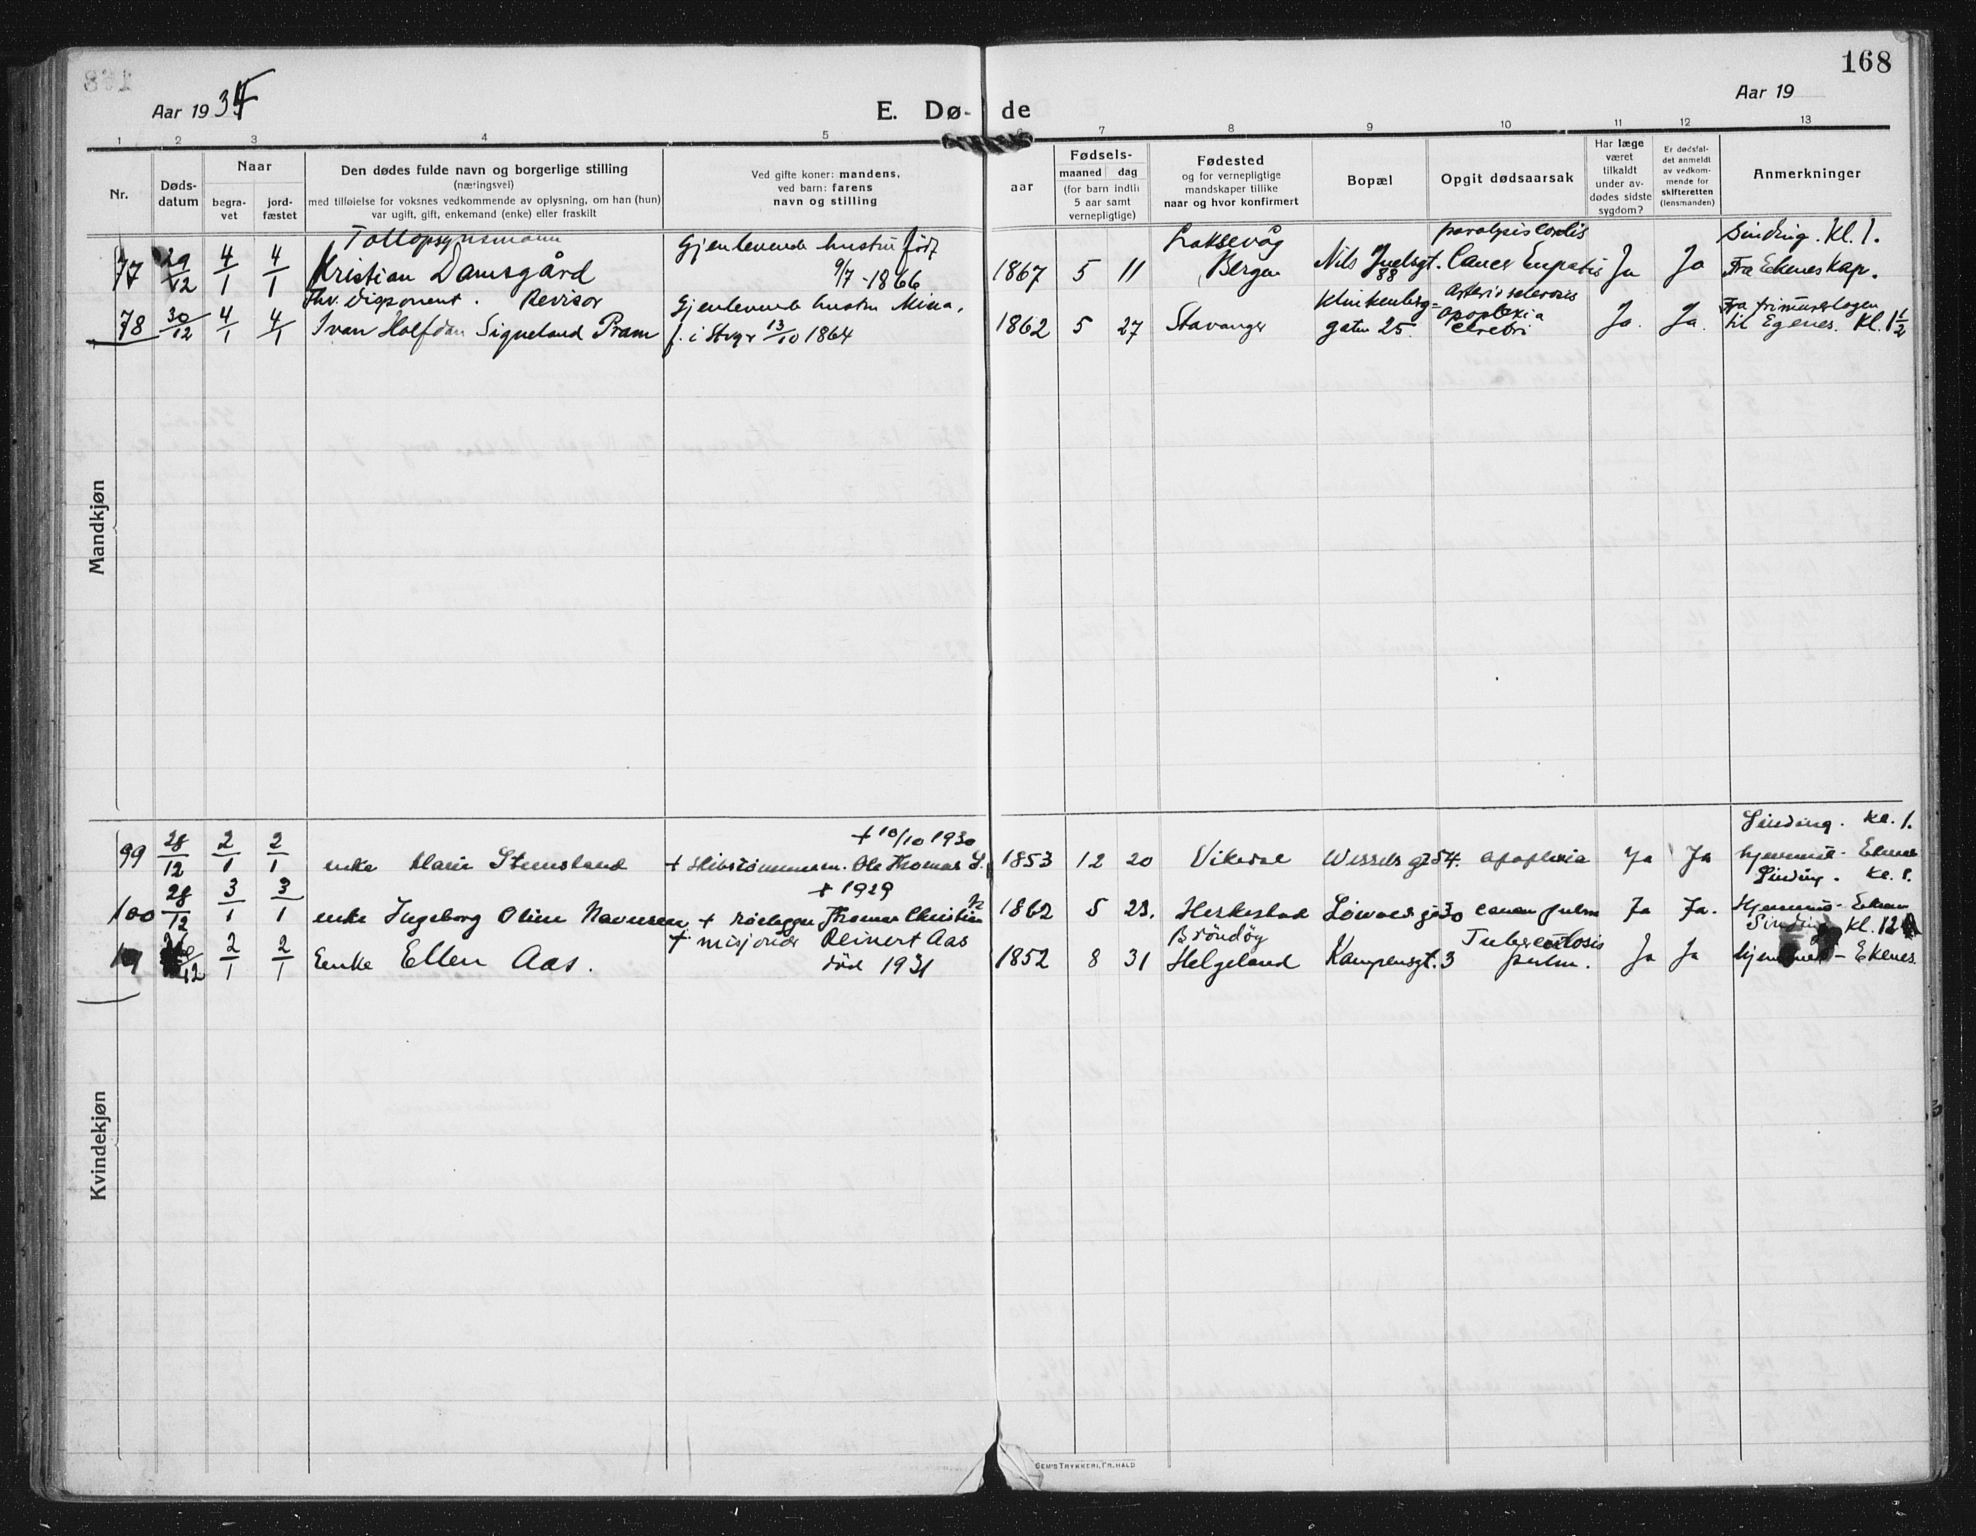 168
Aar 1934
Aar 19
E. Dø- de
1 2 3 4 5 6 7 8 9 10 11 12 13
Nr.
Døds-
datum
Naar
begra-
vet
jord-
fæstet
Den dødes fulde navn og borgerlige stilling
(næringsvei)
med tilføielse for voksnes vedkommende av oplysning, om han (hun)
var ugift, gift, enkemand (enke) eller fraskilt
Ved gifte koner: mandens,
ved barn: farens
navn og stilling
aar
Fødsels-
maaned dag
(for barn indtil
5 aar samt
vernepligtige)
Fødested
og for vernepligtige
mandskaper tillike
naar og hvor konfirmert
Bopæl
Opgit dødsaarsak
Har læge
været
tilkaldt
under av-
dødes sidste
sygdom?
Er dødsfal-
det anmeldt
av vedkom-
mende for
skifteretten
(lensmanden)
Anmerkninger
Mandkjøn
Tollopsynsmann Gjenlevende hustru født Laksevåg paralysis cordis Sinding. Kl. 1.
77 29/12 4/1 4/1 Kristian Damsgård 9/7 - 1866 1867 5 11 Bergen Nils Juelsgt. 88 Cancer Ja Ja Fra Ekenes Kap.
fhv. disponent. Revisor Gjenlevende hustru Mina, Klinkenberg- Arteriosclerosis Fra frimurerlogen
78 30/12 4/1 4/1 Ivan Halfdan Signeland Pram f. i Stvgr 13/10 1864 1862 5 27 Stavanger gaten 25. apoplexia cerebri Ja. Ja. til Egenes. Kl. 1 1/2
Kvindekjøn
+ 10/10 1930 Sinding. Kl. 1.
99 28/12 2/1 2/1 enke Marie Stensland + Ole Thomas S. 1853 12 20 Vikedal Wessels gt 54. apoplexia Ja Ja hjemmet - Ekenes
+ 1929 Sinding. Kl. 1.
100 28/12 3/1 3/1 enke Ingeborg Oline + Thomas Christian 1862 5 23. Heskestad 30 cancer pulm Ja Ja. Hjemmet - Ekenes
+ misjonær Reinert Aas Brönöy Tuberculosis Sinding Kl. 12
12 2/1 2/1 Enke Ellen Aas. död 1931 1852 8 31 Helgeland Kampensgt. 3 pulm. Ja Ja hjemmet - Ekenes.
DEM'S TRYKKERI, FR. HALD